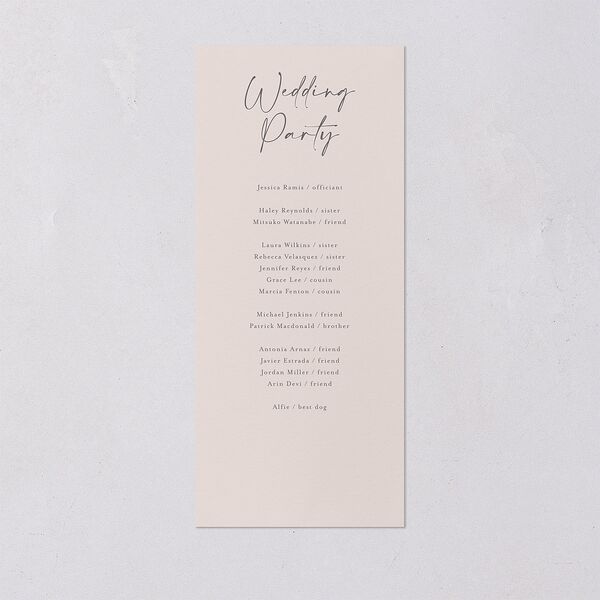 Wedding
Party
Jessica Ramis / officiant
Haley Reynolds / sister
Mitsuko Watanabe / friend
Laura Wilkins / sister
Rebecca Velasquez / sister
Jennifer Reyes / friend
Grace Lee / cousin
Marcia Fenton / cousin
Michael Jenkins / friend
Patrick Macdonald / brother
Antonia Arnaz / friend
Javier Estrada / friend
Jordan Miller / friend
Arin Devi / friend
Alfie / best dog